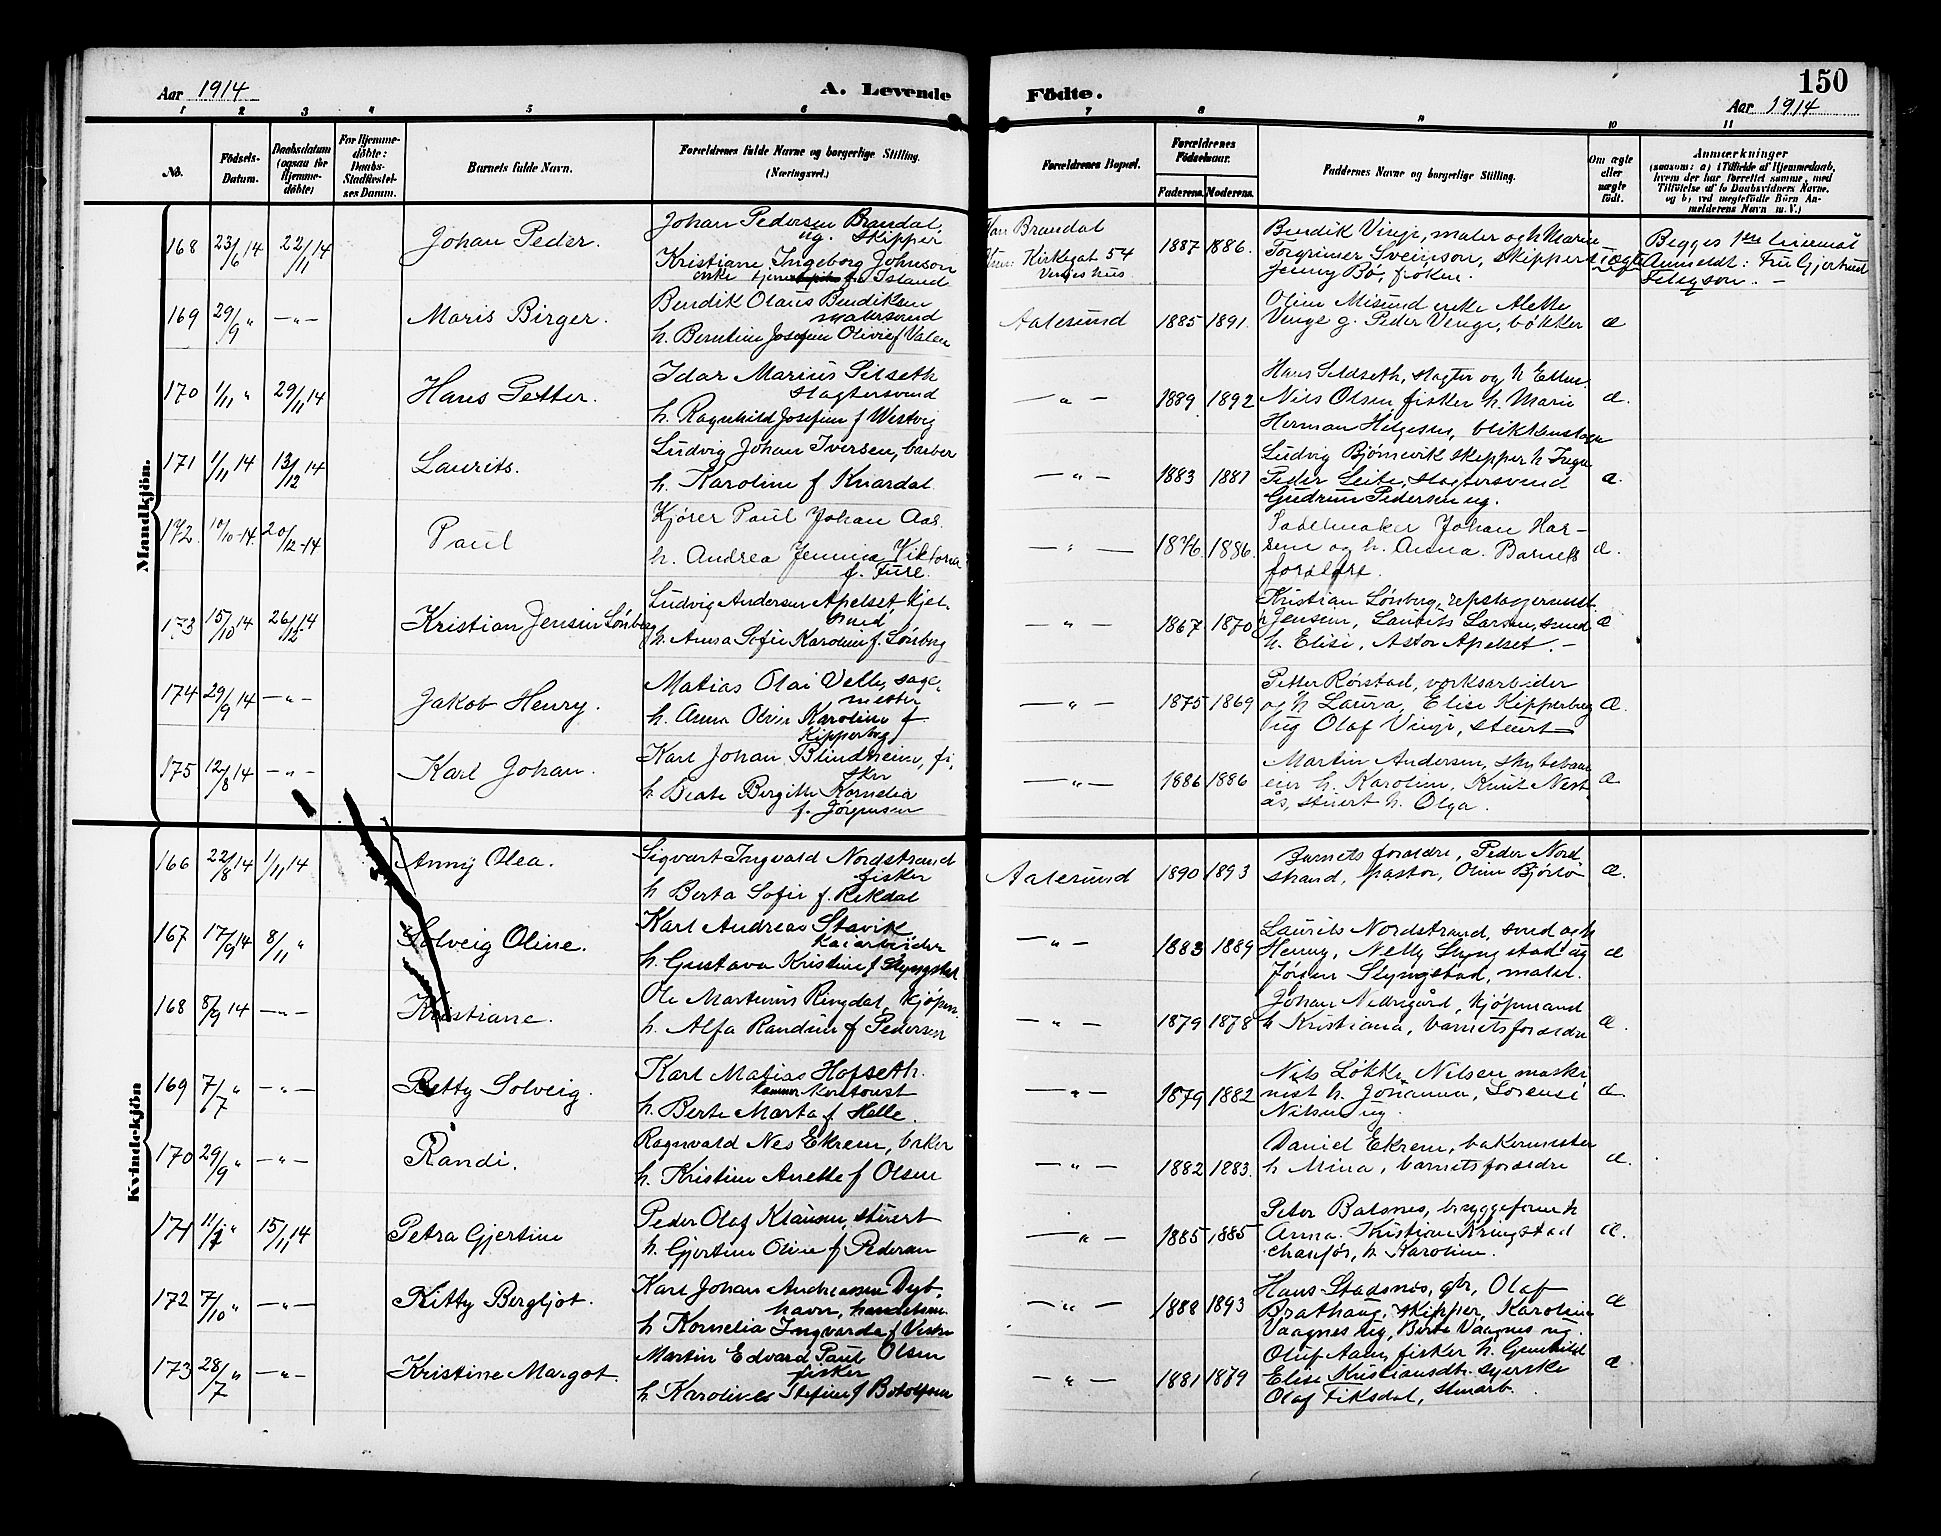 150
Aar 1914
A. Levende Födte.
Aar 1914
1 2 3 4 5 6 7 8 9 10 11
No.
Födsels-Datum.
Daabsdatum (ogsaa for Hjemmedöbte)
For Hjemmedöbte: Daabs-Stadfæstelses Datum.
Barnets fulde Navn.
Forældrenes fulde Navne og borgerlige Stilling. (Næringsvei.)
Forældrenes Bopæl.
Forældrenes Födselsaar.
Faderens. Moderens.
Faddernes Navne og borgerlige Stilling.
Om ægte eller uægte födt.
Anmærkninger
(saasom: a) i Tilfælde af Hjemmedaab, hvem der har forrettet samme, med Tilföielse af to Daabsvidners Navne, og b) ved uegtefödte Börn Anmelderens Navn m. V.)
Mandkjön.
168 23/6 14 22/11 14 Johan Peder.
Johan Pedersen Brandal,
ug. skipper
Kristiane Ingeborg Johnson
enke fra Island
Han Brandal
Kirkegat 54
1887 1886.
Bendik Vinje, maler og h Marie
Torgrimer Sveinson, skipper
Jenny Bö, fröken.
uægte
Begges 1ste leiermål
Anmeldt: Fru Gjertrud
169 29/9 " — " — Maris Birger.
Bendik Olaus Bendiksen
malersvend
h. Berntine Josefine Olivie f Valen
Aalesund
1885 1891.
Oline Misund enke Alette
Venge g. Peder Venge, bökker
æ
170 1/11 " 29/11 14 Hans Petter.
Idar Marius Silseth
slagtersvend
h. Ragnhild Josefine f Westvig
— " —
1889 1892
Hans Sildseth, slagter og h Ellen.
Nils Olsen fisker h. Marie
Herman Helgesen, blikkenslager
æ.
171 1/11 14 13/12 14 Laurits.
Ludvig Johan Iversen, barber
h. Karoline f Knardal.
— " —
1883 1881
Ludvig Björnevik skipper h Inga
Peder Leite, slagtersvend
Gudrun Pedersen ug.
æ.
172. 10/10-14. 20/12-14 Paul
Kjörer Paul Johan Aas.
h. Andrea Jennica Viktoria
f. Fure.
— " —
1876. 1886.
Sadelmaker Johan Har-
sem og h. Anna. Barnets
foreldre.
æ.
173 15/10 14 26/12 14 Kristian Jensen Lönberg
Ludvig Andersen Apelset, kjel-
smed
h. Anna Sofie Karoline f. Lönberg
— " —
1867 1870
Kristian Lönberg, repslagersvend.
Jensen, Laurits Larsen, smed
h. Elise, Astor Apelset. —
æ
174 29/9 14 — " — Jakob Henry.
Matias Olai Velle, sage-
mester
h. Anna Oline Karoline f
Kipperberg
— " —
1875 1869
Petter Rörstad, verksarbeider
og h Laura, Elise Kipperberg
ug Olaf Vinje, stuert
æ.
175 12/8 14 — " — Karl Johan.
Karl Johan Blindheim, fi-
sker
h. Beate Bergitte Kornelia
f. Jörgensen
— " —
1886 1886
Martin Andersen, skytebane
eier h. Karoline, Knut Nest
ås, stuert h. Olga.
æ
Kvindekjön
166 22/8 14 1/11 14 Anny Olea.
Sigvart Ingvald Nordstrand
fisker
h Berta Sofie f. Rekdal
Aalesund
1890 1893
Barnets foreldre, Peder Nord
strand, pastor, Oline Björlo
æ.
167 17/9 14 8/11 " Solveig Oline.
Karl Andreas Stavik
kaiarbeider
h. Gustava Kristine f Slyngstad
— " —
1883 1889
Laurits Nordstrand, smed og h
Henny, Nelly Slyngstad ug
Jörgen Slyngstad, maler.
æ
168 8/9 14 — " — Kristiane.
Ole Martinus Ringdal, kjöpm.
h. Alfa Randine f Pedersen
— " —
1879 1878
Johan Nedregård, kjöpmand
h Kristiana, barnets foreldre
æ.
169 7/7 " — " — Betty Solveig.
Karl Matias Hofseth.
kommunekontorist
h. Berte Marta f Helle.
— " —
1879 1882
Nils Lökke Nilsen maski
nist h. Johanna, Lorense
Nilsen ug.
æ.
170 29/9 " — " — Randi.
Ragnvald Nes Ekrem, baker
h. Kristine Anette f Olsen
— " —
1882 1883.
Daniel Ekrem, bakermester
h Mina, barnets foreldre
æ.
171 11/7 " 15/11 14 Petra Gjertine
Peder Olaf Klausen, stuert
h. Gjertine Oline f Pedersen
— " —
1885 1885
Peter Batsnes, bryggeform. h
Anna. Kristian Kringstad
chauför, h Karoline.
æ.
172 7/10 " — " — Kitty Bergljot.
Karl Johan Andreassen Dyb-
havn, handelsm.
h Kornelia Ingvarda f Vestre
— " —
1888 1893
Hans Stadsnes, gbr, Olaf
Brathaug, skipper, Karoline
Vaagnes ug, Berte Vaagnes ug.
æ
173 28/7 " — " — Kristine Margot.
Martin Edvard Paul Olsen
fisker
h Karoline Stefine f Botolfsen
— " —
1881 1879
Oluf Aam, fisker h. Gunhild
Elise Kristiansdtr. syerske
Olaf Fiksdal, stuearb.
æ